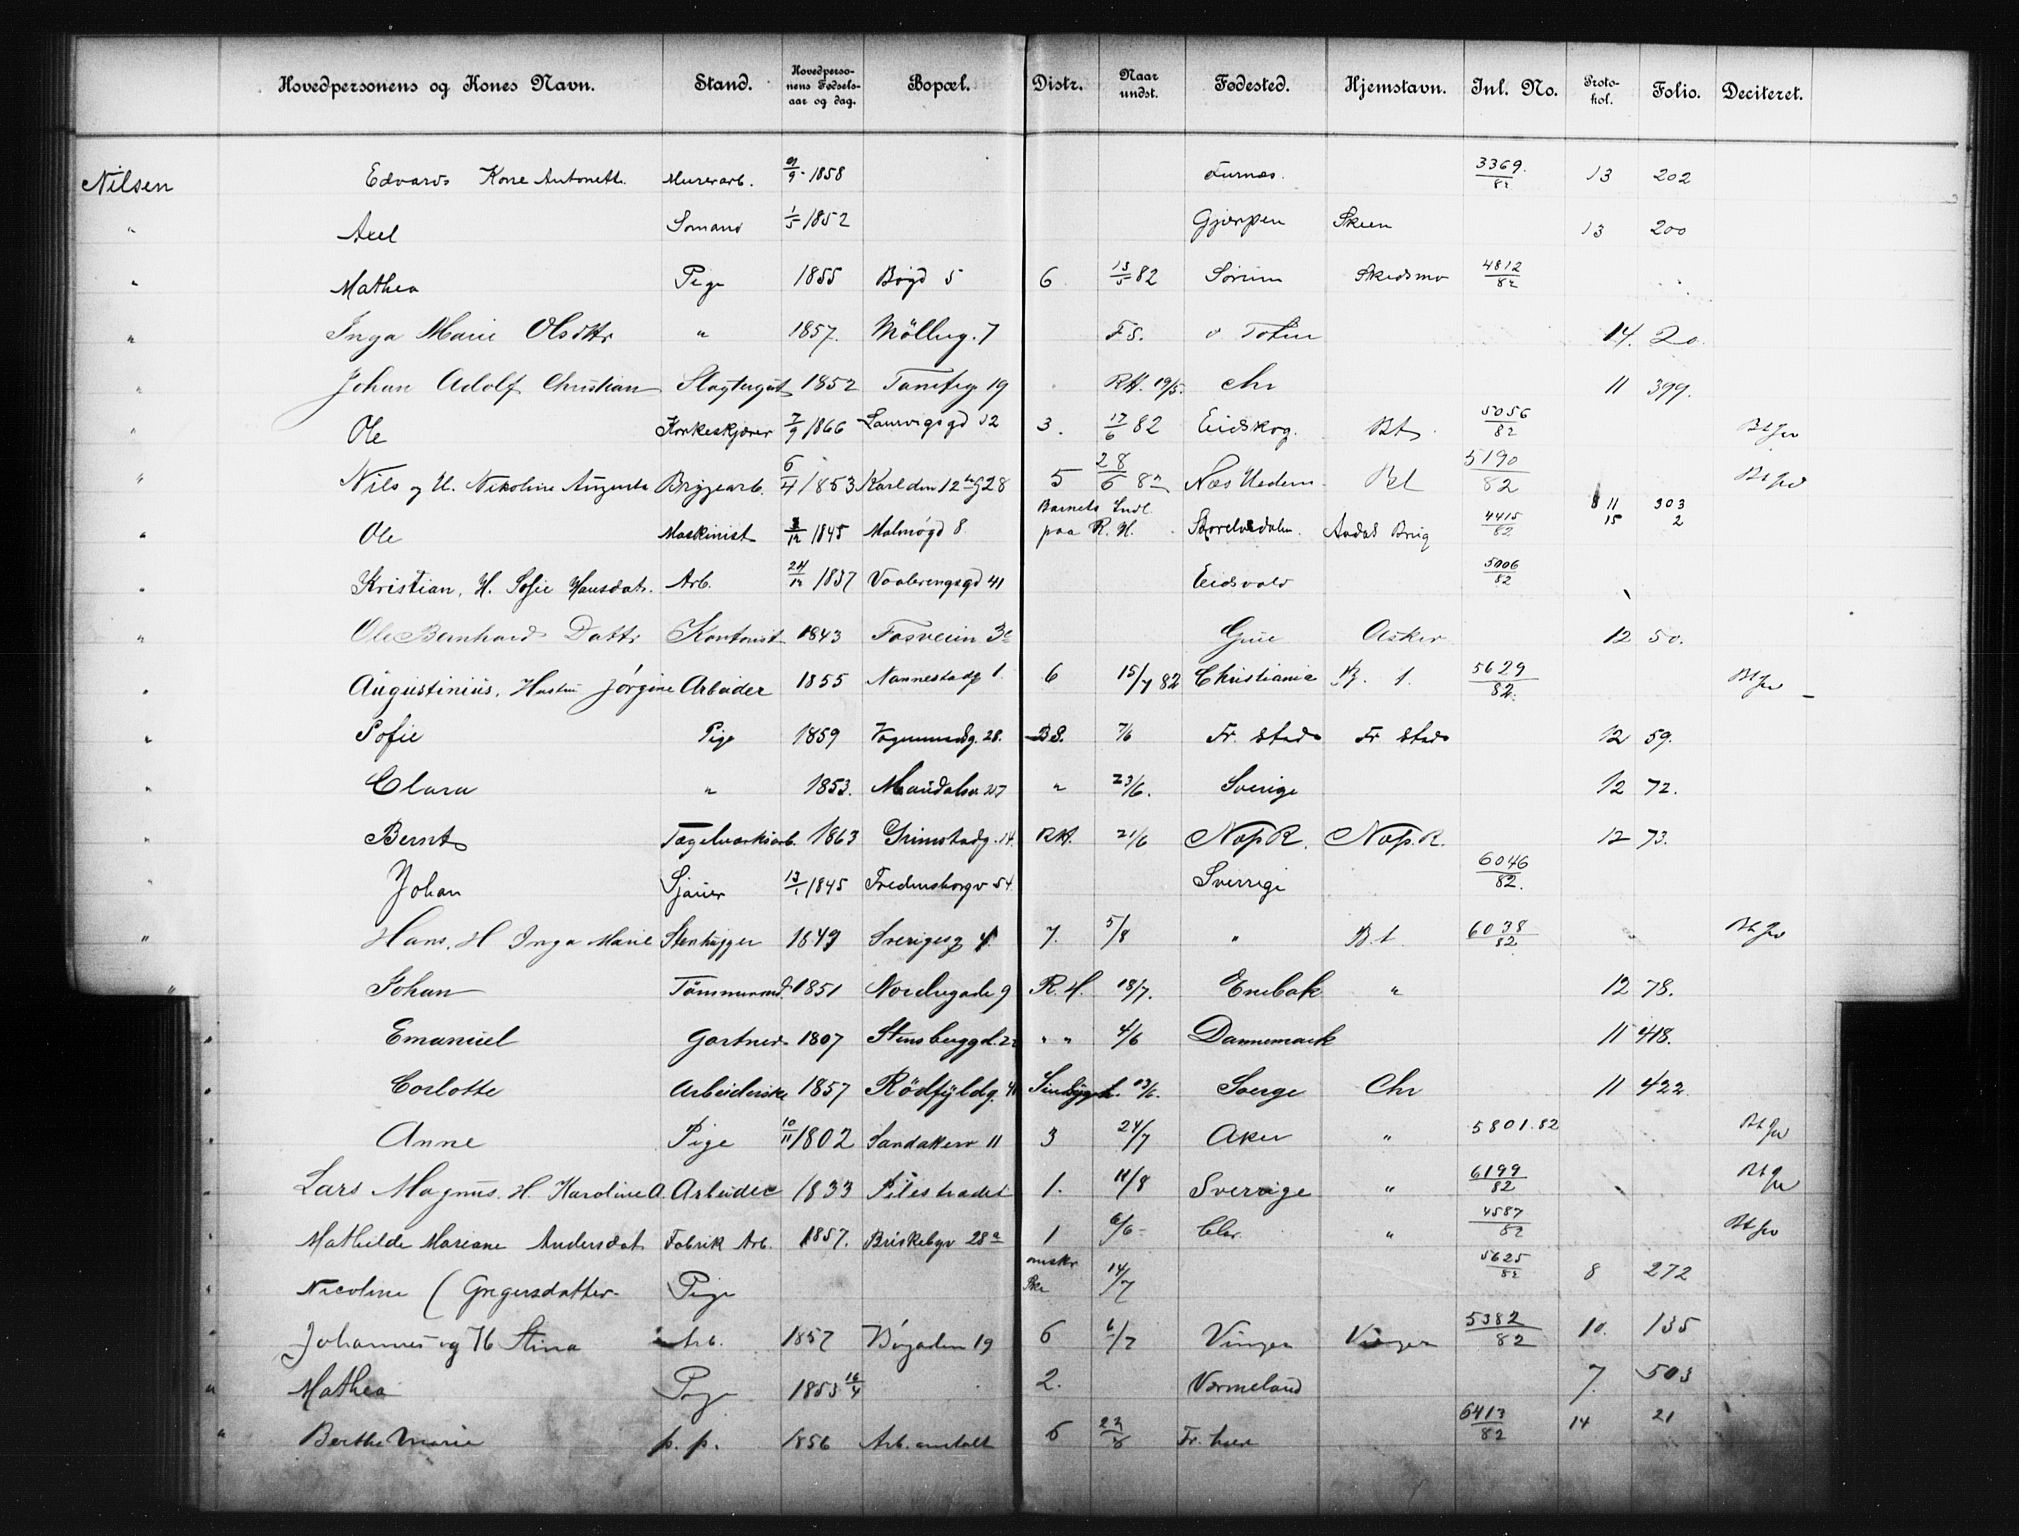 Hovedpersonens og Kones Navn. Stand. Hovedpersonens Fødselsaar og dag. Bopæl. Distr. Naar undst. Fødested. Hjemstavn. Inl. No. Protokol. Folio. Deciteret.
Nilsen Edvard Kone Antonette Murerarb. 9/9 1858 Furnæs. 3369/82 13 202
" Axel Sømand 1/5 1852 Gjerpen Skien 13 200
" Mathea Pige 1855 Bøgd 5 6 13/5 82 Sørum Skedsmo 4812/82
" Inga Marie Olsdtr " 1857. Möllerg. 7 F.S. Ø Toten 14. 20.
" Johan Adolf Christian Slagtergut 1852 19 R.H. 19/5. Chr 11 399.
" Ole Korkeskjærer 7/9 1866 Laurvigsgd 12 3. 17/6 82 Eidskog. Bt 5056/82
" Nils og H. Nikoline Augusta Bryggearb. 6/4 1853 Karl den 12te g 28 5 28/6 82 Næs Hedem. Bt 5190/82
" Ole Maskinist 3/12 1845 Malmøgd 8 Barnets Indl. paa R.H. Aadals Brug 4415/82 11 15 303 2
" Kristian, H. Sofie Hansdatr. Arb. 24/12 1837 Vaalerengsgd 41 Eidsvold 5006/82
" Ole Bernhard Dattr Kontorist 1843 Fosveien 3c Asker 12 50.
" Augustinius, Hustru Jörgine Arbeider 1855 Nannestadg 1. 6 15/7 82 Christiania 5629/82.
" Sofie Pige 1859 28. B.S. 7/6 Fr. Stad Fr Stad 12 59.
" Clara " 1853. Maridalsv 27 " 23/6. Sverige 12 72.
" Bernt Tegelværksarb. 1863 Grimstadg. 14. R.H. 21/6 Næs R. Næs. R. 12 73.
" Johan Sjauer 13/1 1845 Fredensborgv 54. Sverrige 6046/82.
" Hans, H Inga Marie Stenhugger 1849 Sverigesg 4 7. 5/8 " B.t. 6038/82
" Johan Tömmermd. 1851 Nordregade 9 R.H. 18/7. Enebak " 12 78.
" Emanuel Gartner 1807 Stensberggd. 22 " " 4/6 Dannemark 11 418.
" Corlotte Arbeiderske 1857 Rödfyldg. 13/6. Sverge Chr 11 422.
" Anne Pige 10/11 1802 Sandakerv 11 3 24/7 Aker " 5801.82
" Lars Magnus. H. Karoline A Arbeider 1833 Pilestrædet 1. 11/8 Sverrige " 6199/82
Mathilde Mariane Andersdat Fabrik Arb. 1857. Briskebyv 28a 1 6/6 Chr. " 4587/82
Nicoline (Gregersdatter Pige omskr 14/7 5625/82 8 272
Johannes og H Stina Arb. 1857 Bøgaden 19 6 6/7 Vinger Vinger 5382/82 10. 135
" Mathea Pige 1853 16/4 2. Vermeland 7. 503
" Berthe Marie p. p. 1856 Arb. anstalt 6 Fr. hald 6413/82 14 21